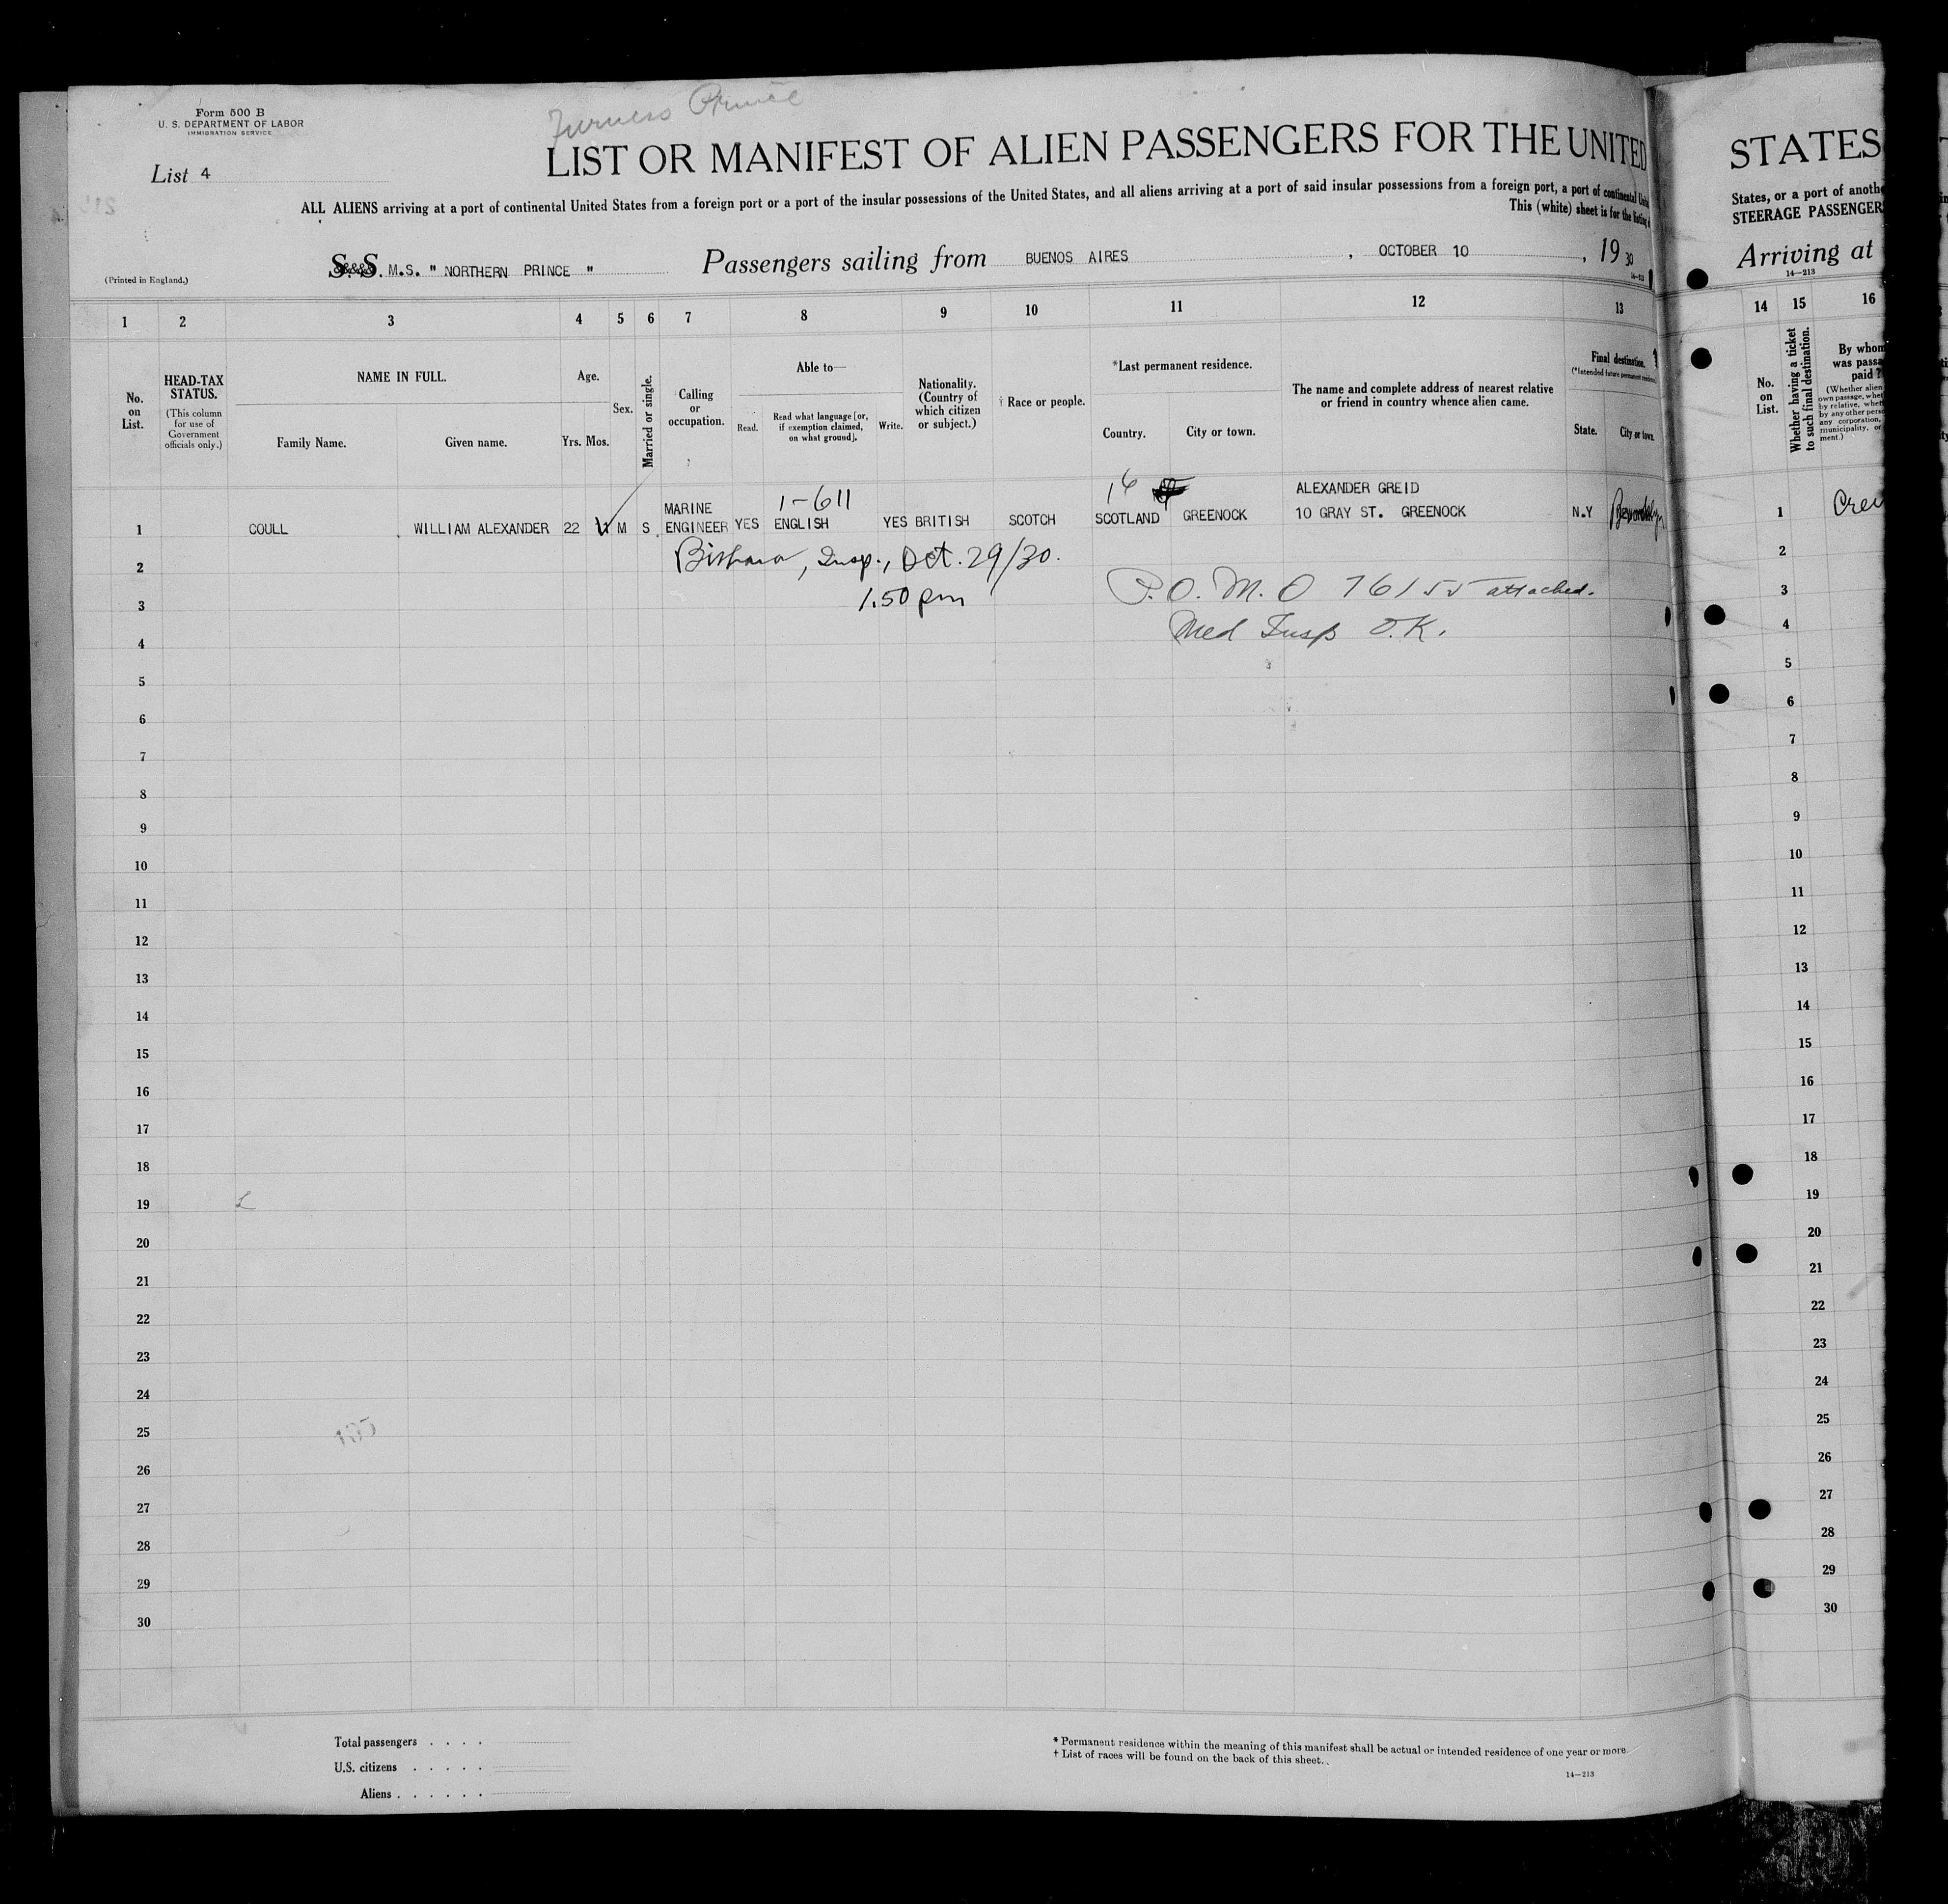 Form 500 B
U. S. DEPARTMENT OF LABOR
IMMIGRATION SERVICE
Furness Prince
List 4
LIST OR MANIFEST OF ALIEN PASSENGERS FOR THE UNITED
ALL ALIENS arriving at a port of continental United States from a foreign port or a port of the insular possessions of the United States, and all aliens arriving at a port of said insular possessions from a foreign port, a port of continental
This (white) sheet is for the listing
(Printed in England.)
S. S. M.S. " NORTHERN PRINCE " Passengers sailing from BUENOS AIRES , OCTOBER 10 , 19 30
1 2 3 4 5 6 7 8 9 10 11 12 13
No. on List.
HEAD-TAX STATUS.
(This column for use of Government officials only.)
NAME IN FULL.
Family Name. Given name.
Age.
Yrs. Mos.
Sex.
Married or single.
Calling or occupation.
Able to—
Read. Read what language [or, if exemption claimed, on what ground]. Write.
Nationality. (Country of which citizen or subject.)
† Race or people.
*Last permanent residence.
Country. City or town.
The name and complete address of nearest relative or friend in country whence alien came.
Final destination.
(*Intended future permanent residence.)
State. City or town.
1 COULL WILLIAM ALEXANDER 22 M S. MARINE ENGINEER YES ENGLISH YES BRITISH SCOTCH SCOTLAND GREENOCK ALEXANDER GREID 10 GRAY ST. GREENOCK N.Y
1-611
16
2 Insp., Oct. 29/30.
3 1.50 pm P.O.M.O 76155 attached.
4 Med Insp O.K.
5
6
7
8
9
10
11
12
13
14
15
16
17
18
19
20
21
22
23
24
25
26
27
28
29
30
Total passengers . . . .
U.S. citizens . . . . .
Aliens . . . . . .
* Permanent residence within the meaning of this manifest shall be actual or intended residence of one year or more.
† List of races will be found on the back of this sheet.
14—213
STATES
States, or a port of anoth
STEERAGE PASSENGER
Arriving at
14—213
14 15 16
No. on List.
Whether having a ticket to such final destination.
By whom
was passa
paid ?
(Whether alien
own passage, whet
by relative, whet
by any other perso
any corporation,
municipality, or
ment.)
1
2
3
4
5
6
7
8
9
10
11
12
13
14
15
16
17
18
19
20
21
22
23
24
25
26
27
28
29
30